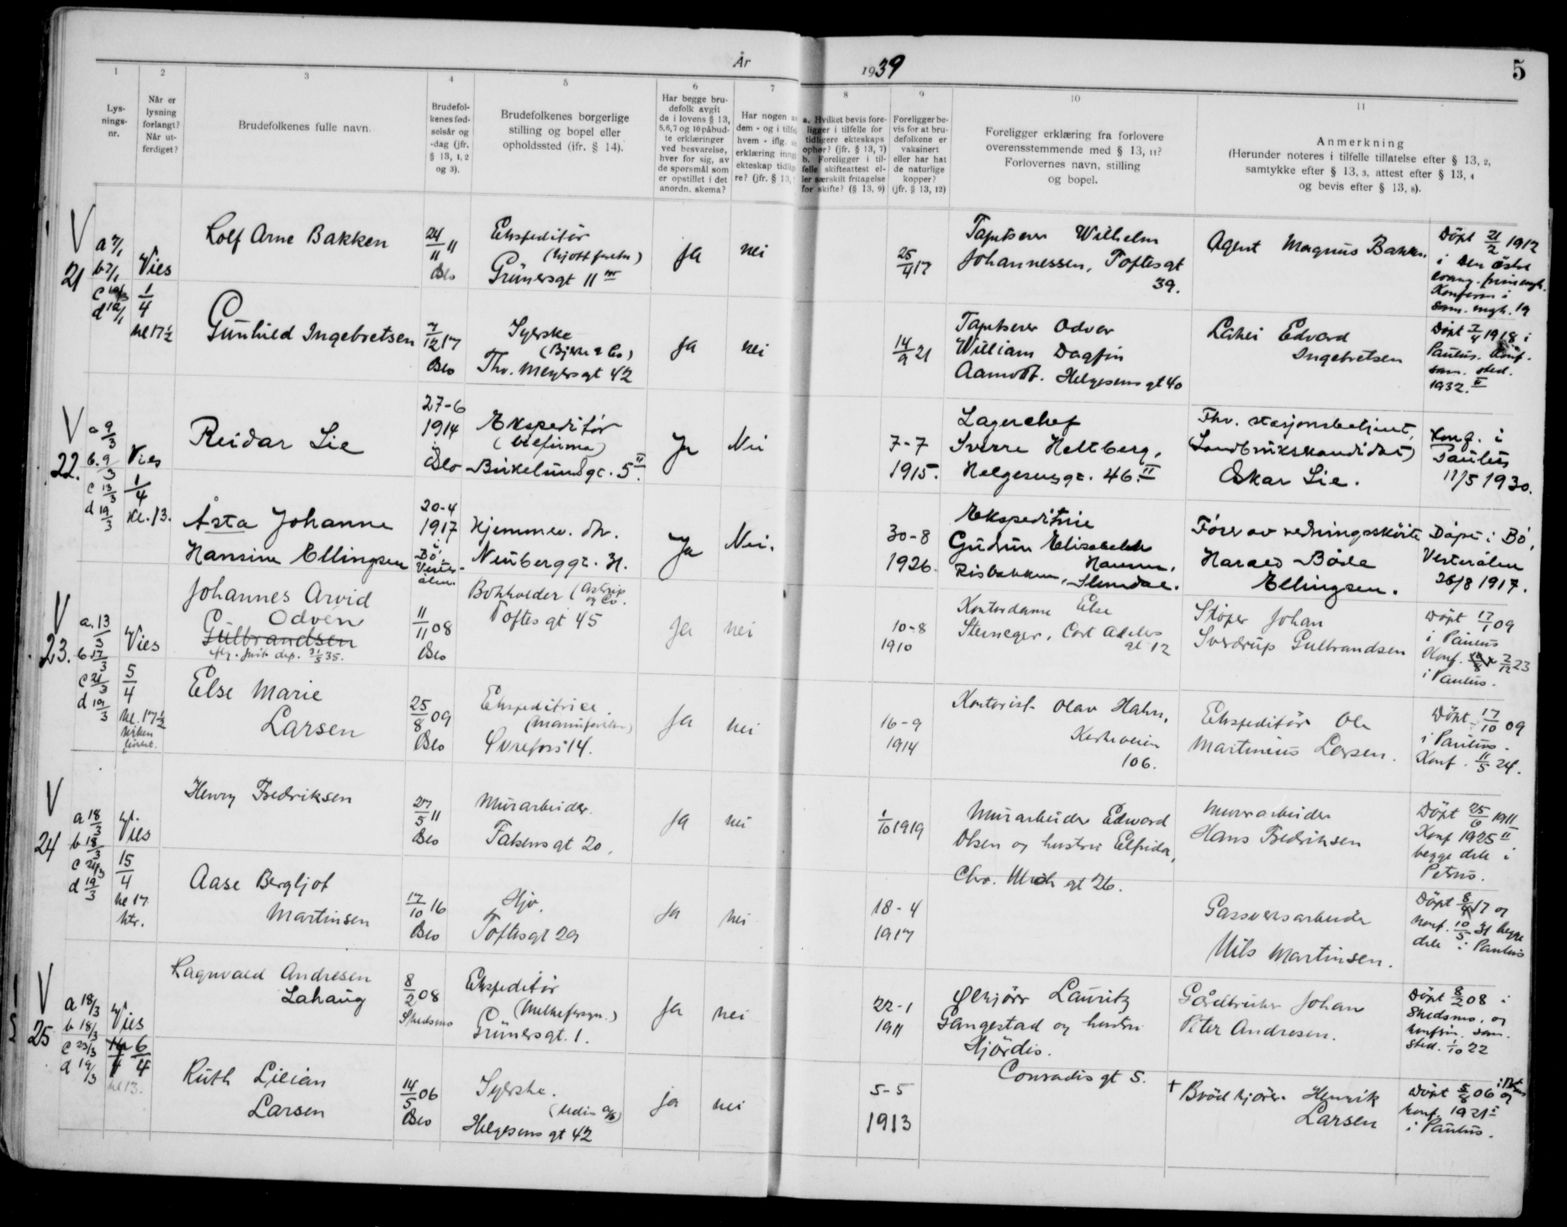 År 1939
5
1 2 3 4 5 6 7 8 9 10 11
Lys-
nings-
nr.
Når er
lysning
forlangt?
Når ut-
ferdiget?
Brudefolkenes fulle navn.
Brudefol-
kenes fød-
selsår og
-dag (jfr.
§ 13, 1, 2
og 3).
Brudefolkenes borgerlige
stilling og bopel eller
opholdssted (jfr. § 14).
Har begge bru-
defolk avgit
de i lovens § 13,
5, 6, 7 og 10 påbud-
te erklæringer
ved besvarelse,
hver for sig, av
de spørsmål som
er opstillet i det
anordn. skema?
Har nogen a
dem - og i tilfe
hvem - iflg.
erklæring inng
ekteskap tidli
re? (jfr. § 13,
a. Hvilket bevis fore-
ligger i tilfelle for
tidligere ekteskaps
ophør? (jfr. § 13, 7)
b. Foreligger i til-
felle skifteattest el-
ler særskilt fritagelse
for skifte? (§ 13, 9)
Foreligger be-
vis for at bru-
defolkene er
vaksinert
eller har hat
de naturlige
kopper?
(jfr. § 13, 12)
Foreligger erklæring fra forlovere
overensstemmende med § 13, 11?
Forlovernes navn, stilling
og bopel.
Anmerkning
(Herunder noteres i tilfelle tillatelse efter § 13, 2,
samtykke efter § 13, 3, attest efter § 13, 4
og bevis efter § 13, 8).
V
21
Vies
1/4
kl 17½
Rolf Arne Bakken
24/11 11
Oslo
Ekspeditør
Grünersgt 11
Ja
nei
25/4 17
Tapetserer Wilhelm
Johannessen, Toftesgt
39.
Agent Magnus Bakken
Döpt 21/2 1912
i Den
Konferm i
sam. mgh.
Gunhild Ingebretsen
7/12 17
Oslo
Syerske
(Bjerke & Co)
Thv. Meyersgt 42
Ja
nei
14/9 21
Tapetserer Odvar
William Dagfin
Aamodt. Helgesensgt 40
Edvard
Ingebretsen
Döpt 7/4 1918 i
Paulus. Konf.
sam. sted.
1932.
V
22.
a 9/3
b. 9/3
c 13/3
d 19/3
Vies
1/4
Kl. 13.
Reidar Lie
27-6
1914
i
Oslo
Ekspeditør
Birkelundgt. 5 II
Ja
Nei
7-7
1915.
Lagerchef
Sverre Heltberg,
Helgesensgt. 46 II
Fhv. stasjonsbetjent,
(Landbrukskandidat)
Oskar Lie.
Konf. i
Paulus
17/5 1930.
Åsta Johanne
Hansine Ellingsen
20-4
1917
i
Bö,
Vester-
ålen.
Hjemmev. dtr.
Neuberggt. 31.
Ja
Nei.
30-8
1926.
Ekspeditrise
Gudrun Elisabeth
Hansen,
Risbakken, Slemdal.
Fører av redningsskøite
Harald Böde
Ellingsen.
Døpt i Bö,
Vesterålen
26/8 1917.
V
23.
a. 13/3
b 17/3
c 21/3
d 19/3
Vies
5/4
kl. 17½
kirken
Johannes Arvid
Odven
Gulbrandsen
11/11 08
Oslo
Bokholder (Astrup
og Co.
Toftesgt 45
Ja
nei
10-8
1910
Kontordame Else
Steneger, Cort Adelers
gt 12
Skøper Johan
Sverdrup Gulbrandsen
Döpt 17/1 09
i Paulus
Konf. 2/12 23
i Paulus.
Else Marie
Larsen
25/8 09
Oslo
Ekspeditrice.
Øvrefoss 14.
Ja
nei
16-9
1914
Kontorist Olav Hahn,
Kirkeveien
106.
Ekspeditör Ole
Martinius Larsen.
Döpt 17/10 09
i Paulus.
Konf. 11/5 24.
V
24
a 18/3
b 18/3
c 24/3
d 19/3
Vies
15/4
kl 17
Henry Fredriksen
27/5 11
Oslo
Murarbeider.
Falsensgt 20.
Ja
nei
1/10 1919
Murarbeider Edward
Olsen og hustru Elfrida,
Chr. Mich gt 26.
Murarbeider
Hans Fredriksen
Döpt 25/6 1911
Konf 1925
begge dele i
Petrus.
Aase Bergljot
Martinsen
17/10 16
Oslo
Hjv.
Toftesgt 29
Ja
nei
18-4
1917
Gassverksarbeider
Nils Martinsen.
Döpt 8/4 17 og
konf. 10/5 31 begge
dele i Paulus
V
25
a 18/3
b 18/3
c 23/3
d 19/3
Vies
6/4
kl 13.
Ragnvald Andresen
Lahaug
8/2 08
Skedsmo
Ekspeditør
(Melkeforsyn.)
Grünersgt. 1.
Ja
nei
22-1
1911
Ølkjører Lauritz
Gangestad og hustru
Hjördis.
Conradisgt 5.
Gårdbruker Johan
Peter Andresen.
Döpt 8/2 08 i
Skedsmo, og
konfirm. sam.
sted. 1/10 22
Ruth Lilian
Larsen
14/5 06
Oslo
Syerske.
Helgesensgt 42
ja
nei
5-5
1913
+ Brödkjörer Henrik
Larsen
Döpt 5/8 06 i Petrus
og
konf. 1921
i Paulus.